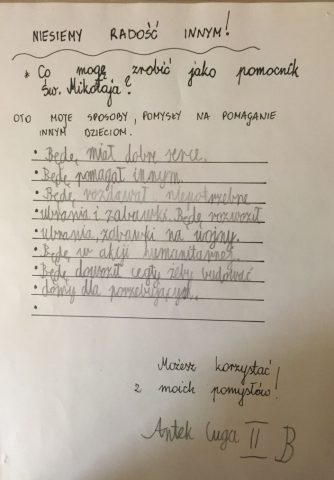 NIESIEMY RADOŚĆ INNYM!
* Co mogę zrobić jako pomocnik
Św. Mikołaja?
OTO MOJE SPOSOBY, POMYSŁY NA POMAGANIE
INNYM DZIECIOM.
• Będę miał dobre serce.
• Będę pomagał innym.
• Będę rozdawał niepotrzebne
• ubrania i zabawki. Będę rozwoził
• ubrania, zabawki na wojny.
• Będę w akcji humanitarnej.
• Będę dowoził cegły żeby budować
• domy dla potrzebujących.
•
Możesz korzystać
z moich pomysłów!
Antek Cuga II B